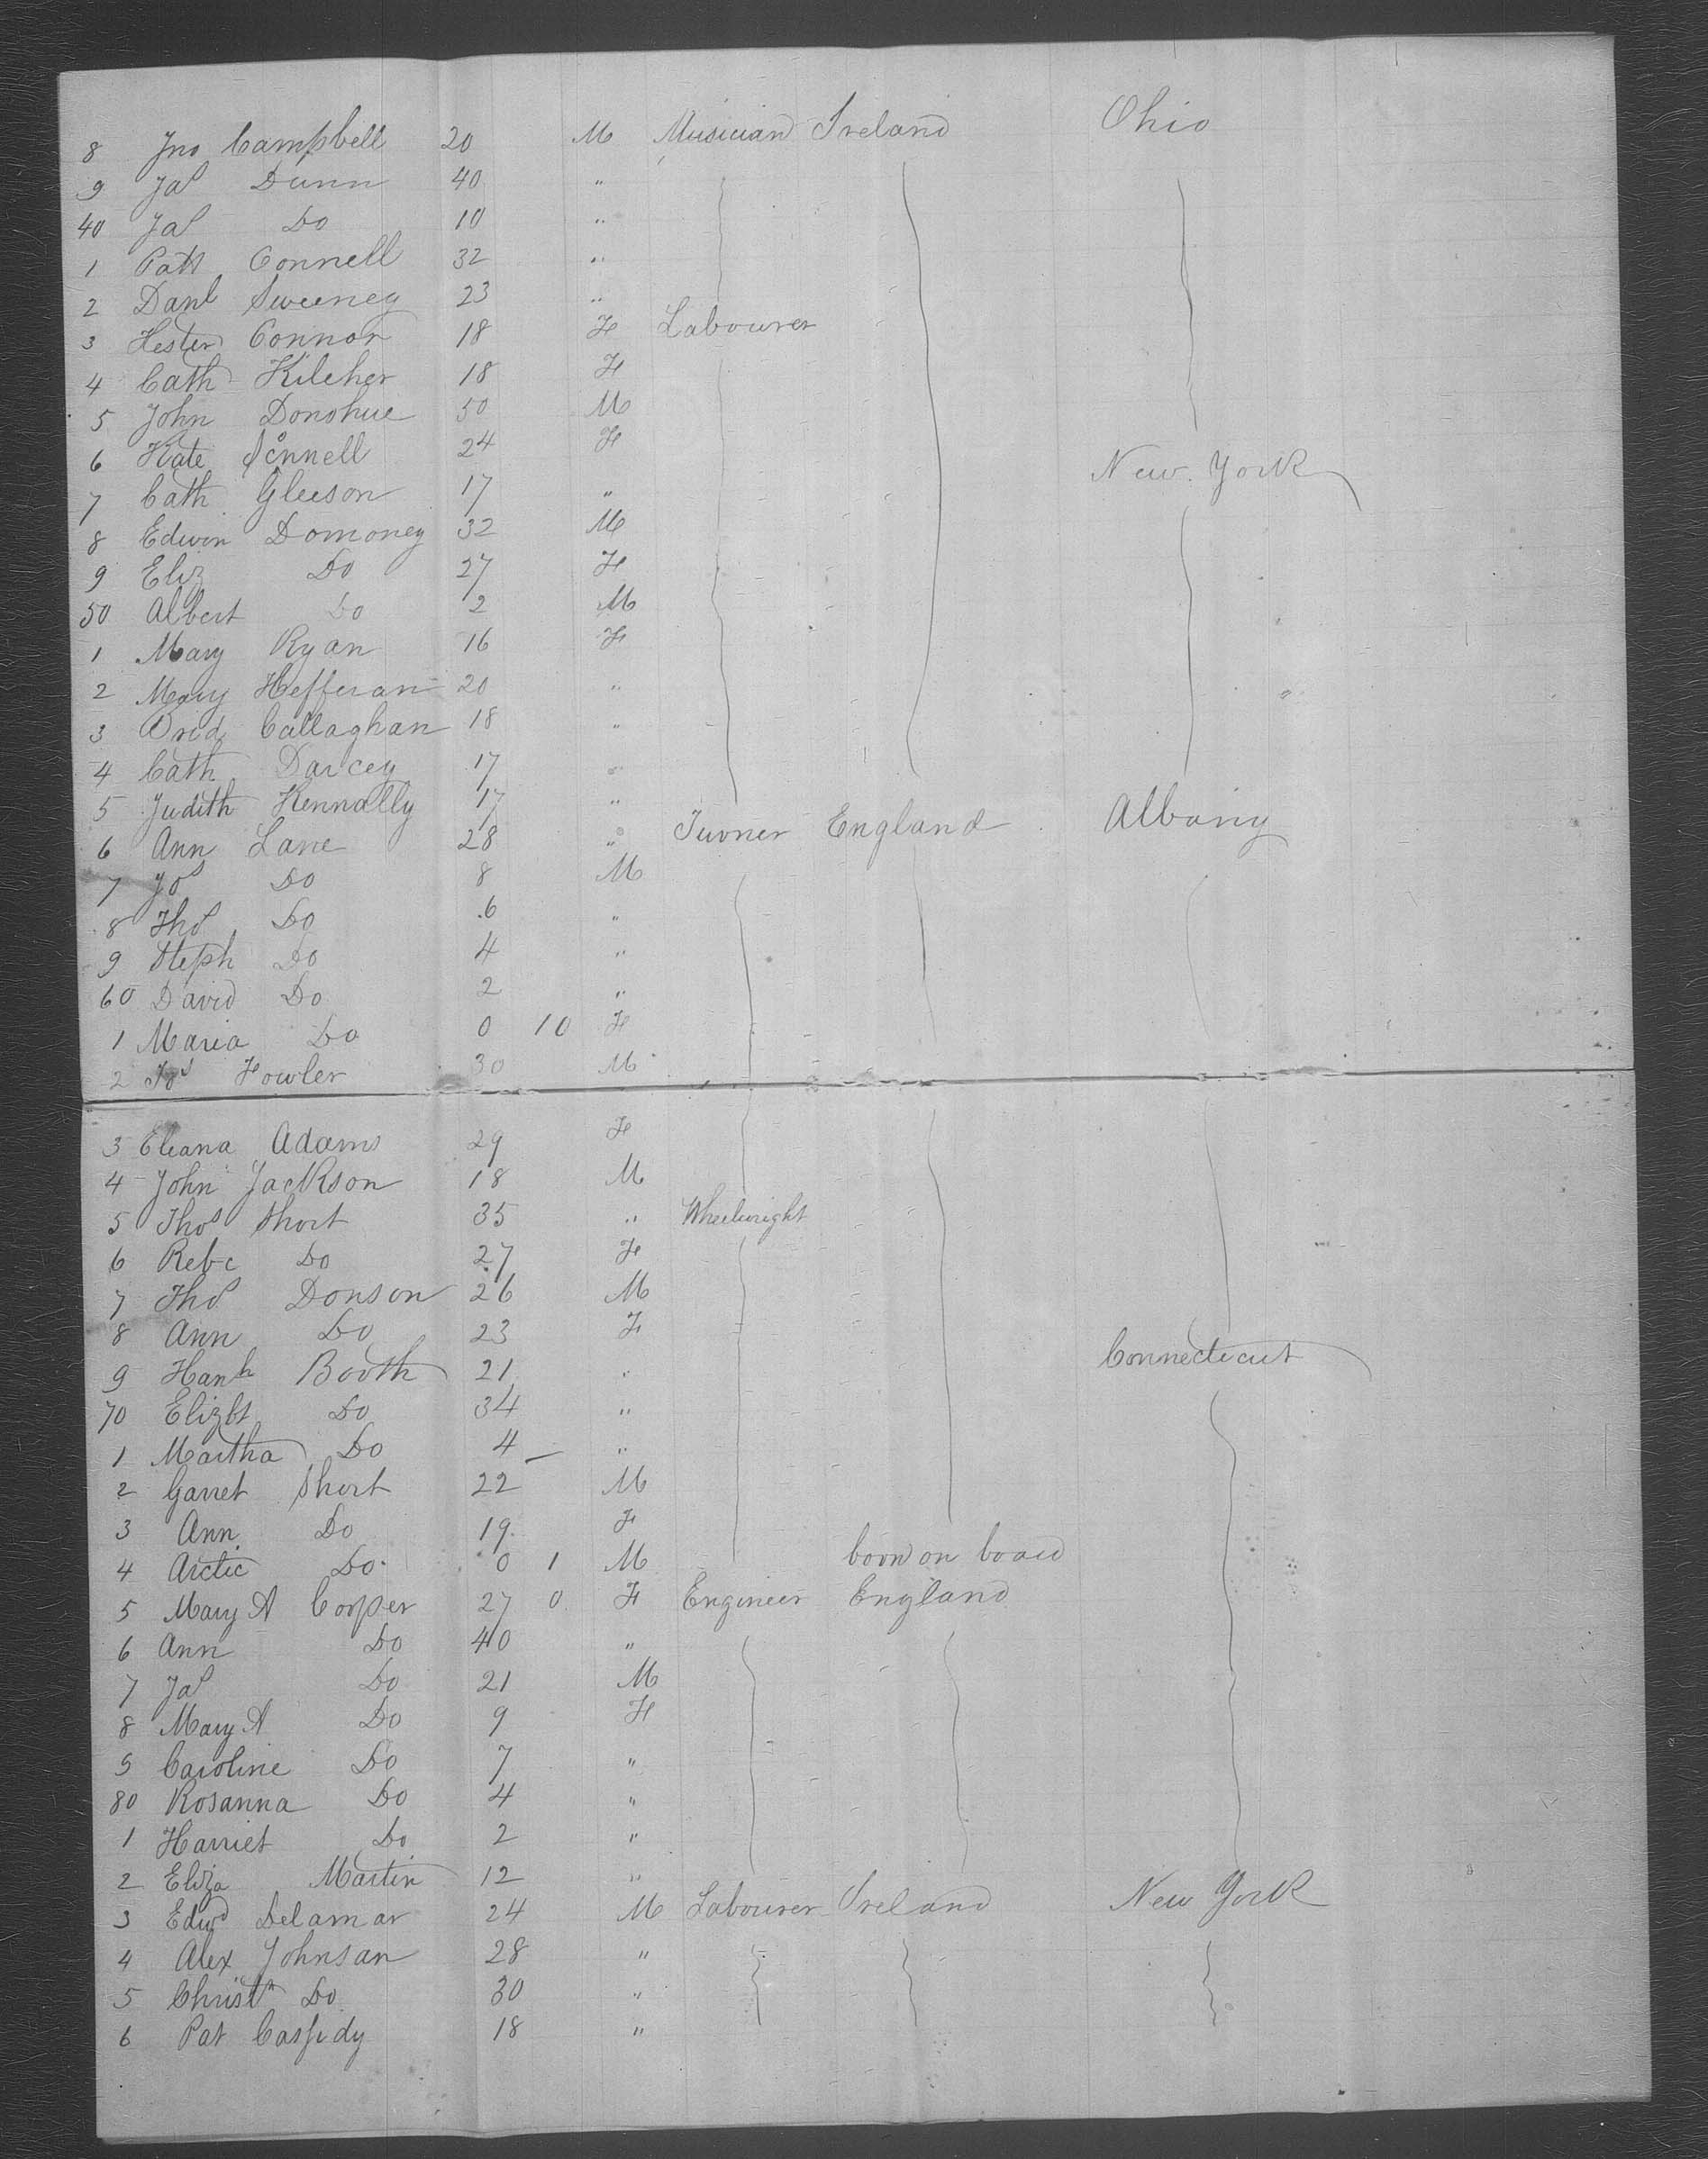 8 Jno Campbell 20 M Musician Ireland Ohio
9 Jas Dunn 40 "
40 Jas Do 10 "
1 Patk Connell 32 "
2 Danl Sweeney 23 "
3 Hester Connor 18 F Labourer
4 Cath Kilcher 18 F
5 John Donohue 50 M
6 Kate 24 F New York
7 Cath Gleeson 17 "
8 Edwin Domoney 32 M
9 Eliz Do 27 F
50 Albert Do 2 M
1 Mary Ryan 16 F
2 Mary Hefferan 20 "
3 Brid Callaghan 18 "
4 Cath Darcey 17 "
5 Judith Kennally 17 "
6 Ann Lane 28 " Turner England Albany
7 Jos Do 8 M
8 Thos Do 6 "
9 Steph Do 4 "
60 David Do 2 "
1 Maria Do 0 10 F
2 Jos Fowler 30 M
3 Eleana Adams 29 F
4 John Jackson 18 M
5 Thos Short 35 " Wheelwright
6 Rebc Do 27 F
7 Thos Donson 26 M
8 Ann Do 23 F
9 Hanh Booth 21 " Connecticut
70 Elizbt Do 34 "
1 Martha Do 4 - "
2 Garret Short 22 M
3 Ann Do 19 F
4 Arctic Do 0 1 M born on board
5 Mary A Corper 27 0 F Engineer England
6 Ann Do 40 "
7 Jas Do 21 M
8 Mary A Do 9 F
9 Caroline Do 7 "
80 Rosanna Do 4 "
1 Harriet Do 2 "
2 Eliza Martin 12 "
3 Edwd Delamar 24 M Labourer Ireland New York
4 Alex Johnsan 28 "
5 Christn Do 30 "
6 Pat Cassidy 18 "